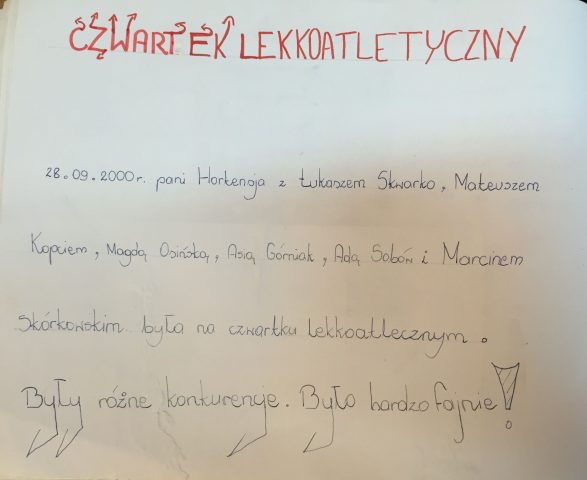 CZWARTEK LEKKOATLETYCZNY
28.09.2000r. pani Hortensja z Łukaszem Skwarko, Mateuszem
Kopciem, Magdą Osińską, Asią Górniak, Adą Soból i Marcinem
Skórkowskim była na czwartku lekkoatlecznym.
Były różne konkurencje. Było bardzo fajnie!